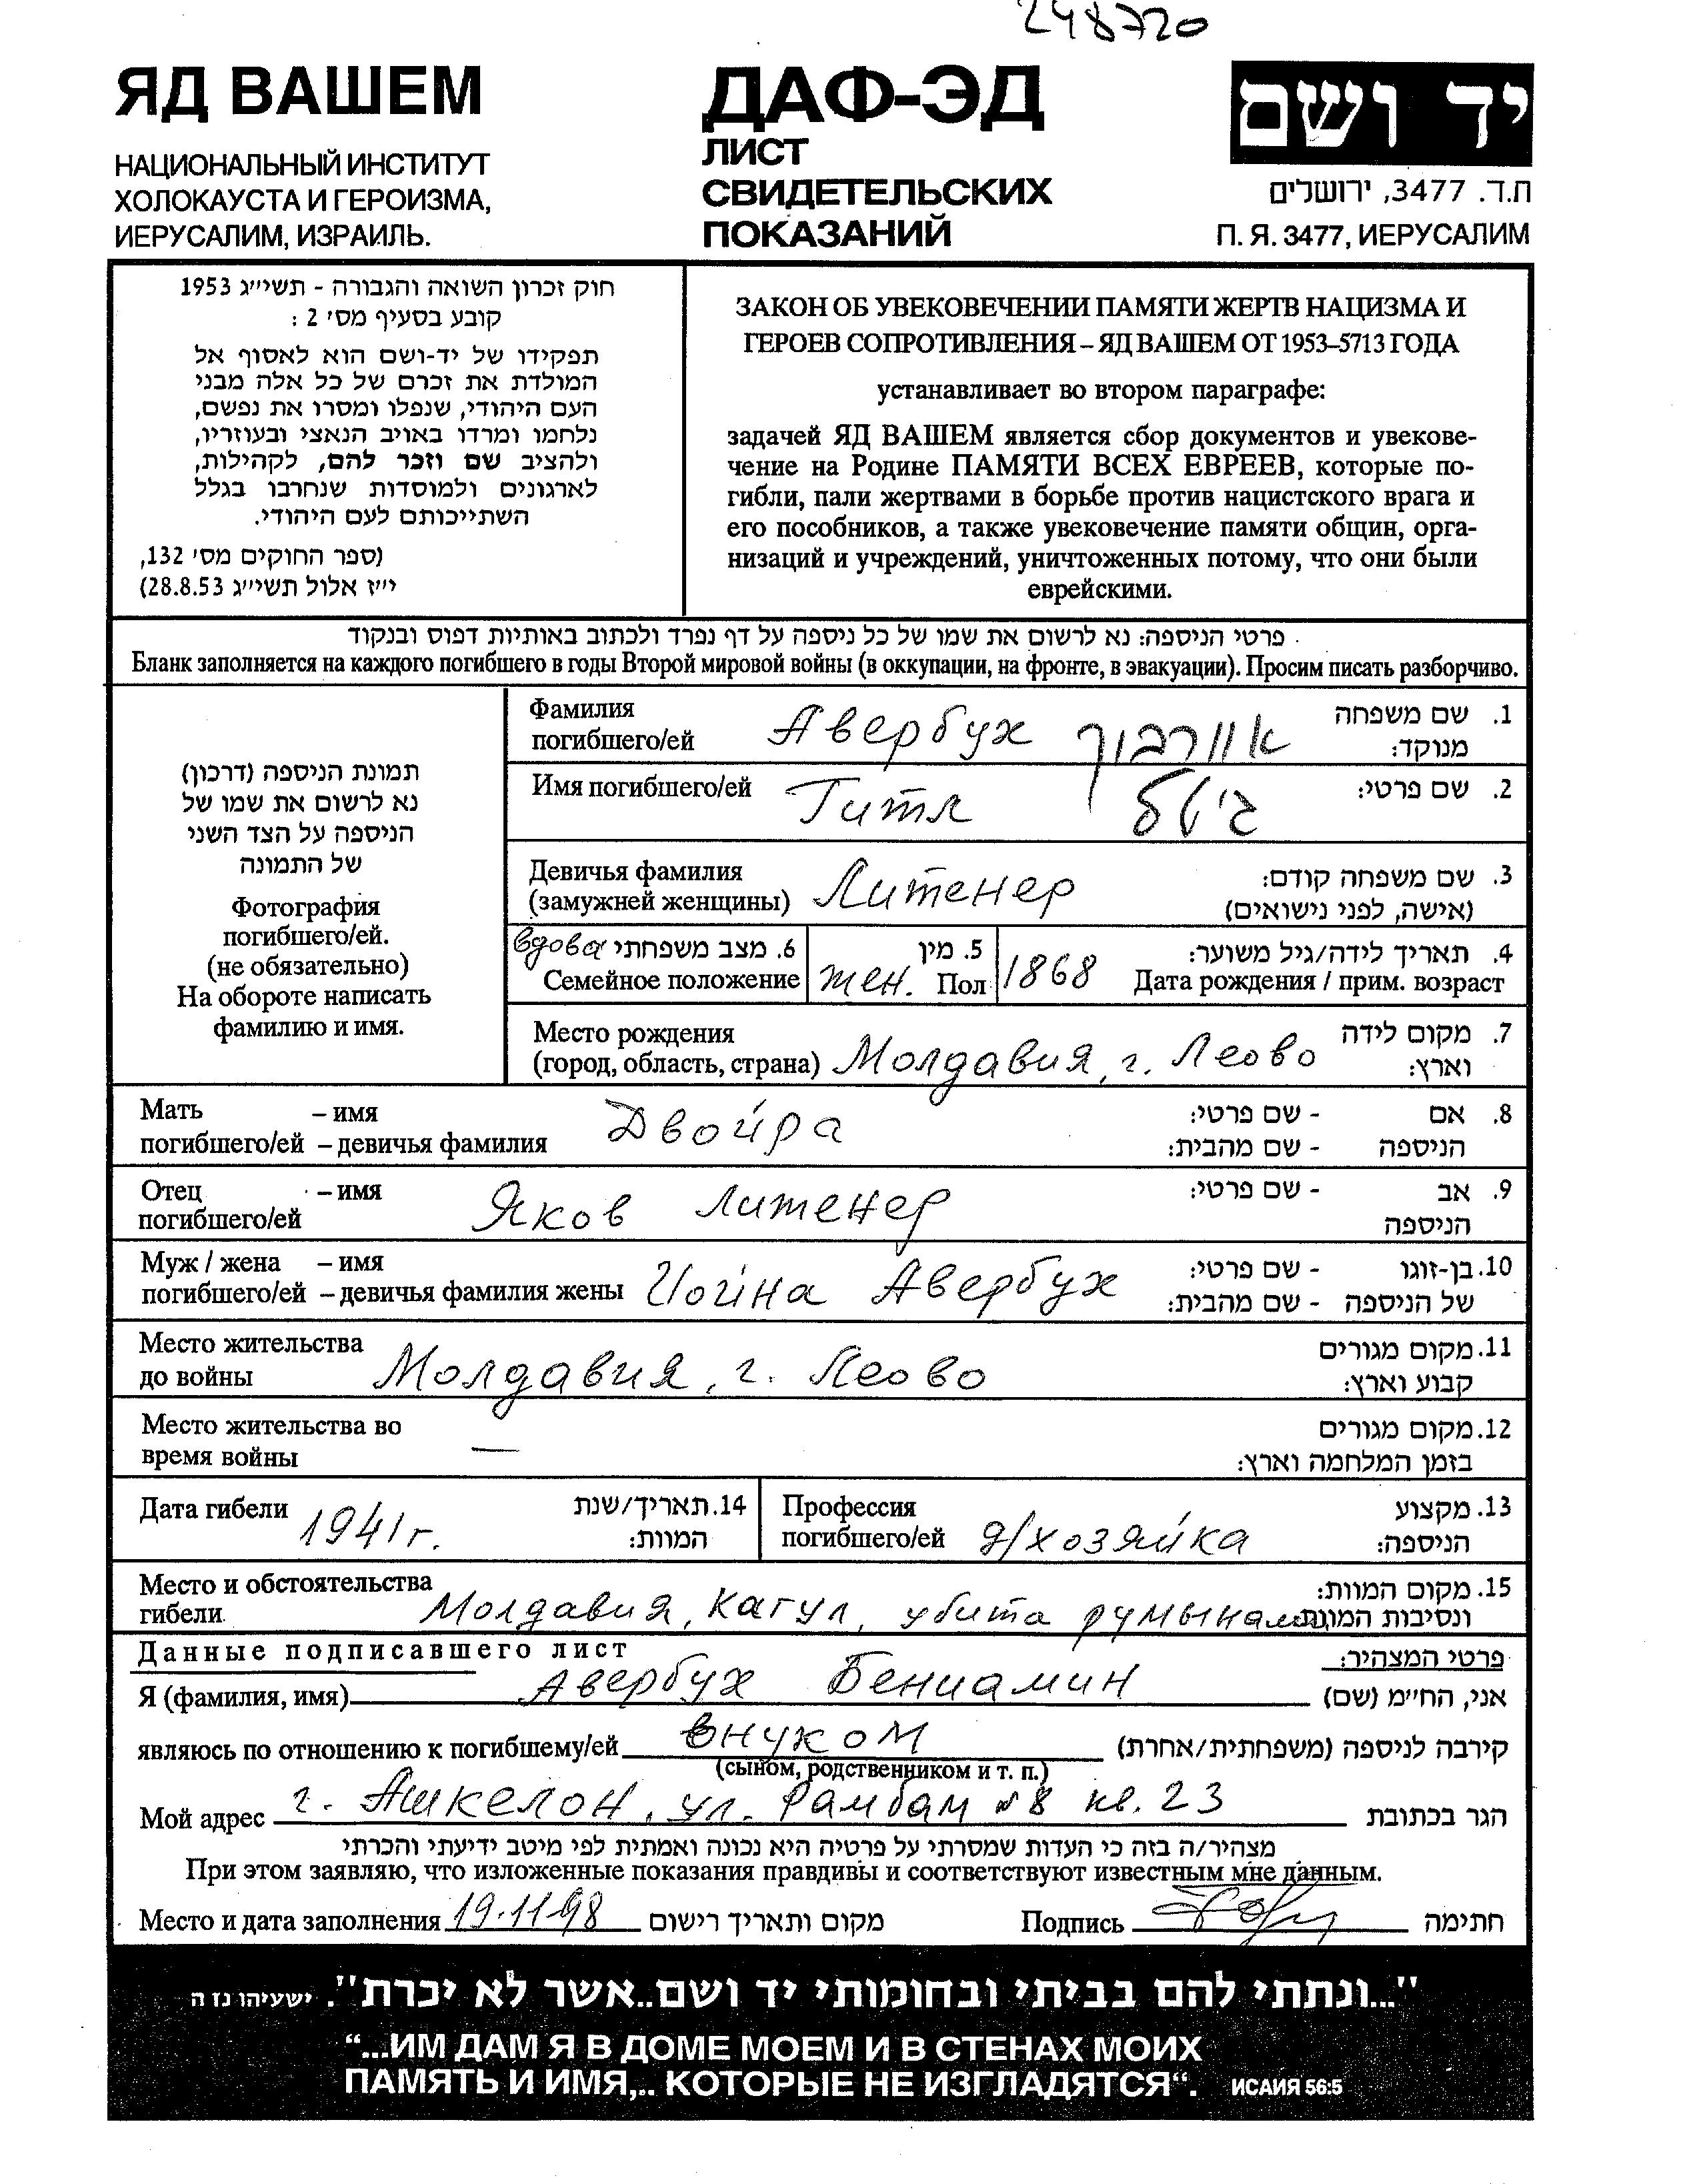 248720
ЯД ВАШЕМ
НАЦИОНАЛЬНЫЙ ИНСТИТУТ
ХОЛОКАУСТА И ГЕРОИЗМА,
ИЕРУСАЛИМ, ИЗРАИЛЬ.
ДАФ-ЭД
ЛИСТ
СВИДЕТЕЛЬСКИХ
ПОКАЗАНИЙ
יד ושם
ת.ד. 3477, ירושלים
П. Я. 3477, ИЕРУСАЛИМ
חוק זכרון השואה והגבורה - תשי״ג 1953
קובע בסעיף מס׳ 2 :
תפקידו של יד-ושם הוא לאסוף אל
המולדת את זכרם של כל אלה מבני
העם היהודי, שנפלו ומסרו את נפשם,
נלחמו ומרדו באויב הנאצי ובעוזריו,
ולהציב שם וזכר להם, לקהילות,
לארגונים ולמוסדות שנחרבו בגלל
השתייכותם לעם היהודי.
(ספר החוקים מס׳ 132,
י״ז אלול תשי״ג 28.8.53)
ЗАКОН ОБ УВЕКОВЕЧЕНИИ ПАМЯТИ ЖЕРТВ НАЦИЗМА И
ГЕРОЕВ СОПРОТИВЛЕНИЯ – ЯД ВАШЕМ ОТ 1953–5713 ГОДА
устанавливает во втором параграфе:
задачей ЯД ВАШЕМ является сбор документов и увекове-
чение на Родине ПАМЯТИ ВСЕХ ЕВРЕЕВ, которые по-
гибли, пали жертвами в борьбе против нацистского врага и
его пособников, а также увековечение памяти общин, орга-
низаций и учреждений, уничтоженных потому, что они были
еврейскими.
פרטי הניספה: נא לרשום את שמו של כל ניספה על דף נפרד ולכתוב באותיות דפוס ובנקוד
Бланк заполняется на каждого погибшего в годы Второй мировой войны (в оккупации, на фронте, в эвакуации). Просим писать разборчиво.
תמונת הניספה (דרכון)
נא לרשום את שמו של
הניספה על הצד השני
של התמונה
Фотография
погибшего/ей.
(не обязательно)
На обороте написать
фамилию и имя.
Фамилия погибшего/ей Авербух אוורבוך 1. שם משפחה מנוקד:
Имя погибшего/ей Гитл גיטל 2. שם פרטי:
Девичья фамилия (замужней женщины) Литенер 3. שם משפחה קודם: (אישה, לפני נישואים)
вдова 6. מצב משפחתי Семейное положение
жен. 5. מין Пол
1868 4. תאריך לידה/גיל משוער: Дата рождения / прим. возраст
Место рождения (город, область, страна) Молдавия, г. Леово 7. מקום לידה וארץ:
Мать – имя Двойра 8. אם - שם פרטי:
погибшего/ей – девичья фамилия הניספה - שם מהבית:
Отец – имя Яков Литенер 9. אב - שם פרטי:
погибшего/ей הניספה
Муж / жена – имя 10. בן-זוגו - שם פרטי:
погибшего/ей – девичья фамилия жены Иойна Авербух של הניספה - שם מהבית:
Место жительства до войны Молдавия, г. Леово 11. מקום מגורים קבוע וארץ:
Место жительства во время войны — 12. מקום מגורים בזמן המלחמה וארץ:
Дата гибели 1941г. 14. תאריך/שנת המוות:
Профессия погибшего/ей д/хозяйка 13. מקצוע הניספה:
Место и обстоятельства гибели Молдавия, Кагул, убита румынами 15. מקום המוות: ונסיבות המוות:
Данные подписавшего лист פרטי המצהיר:
Я (фамилия, имя) Авербух Бениамин אני, החי״מ (שם)
являюсь по отношению к погибшему/ей внуком קירבה לניספה (משפחתית/אחרת)
(сыном, родственником и т. п.)
Мой адрес г. Ашкелон, ул. Рамбам №8 кв. 23 הגר בכתובת
מצהיר/ה בזה כי העדות שמסרתי על פרטיה היא נכונה ואמתית לפי מיטב ידיעתי והכרתי
При этом заявляю, что изложенные показания правдивы и соответствуют известным мне данным.
Место и дата заполнения 19.11.98 מקום ותאריך רישום Подпись חתימה
"...ונתתי להם בביתי ובחומותי יד ושם..אשר לא יכרת". ישעיהו נז ה
“...ИМ ДАМ Я В ДОМЕ МОЕМ И В СТЕНАХ МОИХ
ПАМЯТЬ И ИМЯ,.. КОТОРЫЕ НЕ ИЗГЛАДЯТСЯ“. ИСАИЯ 56:5